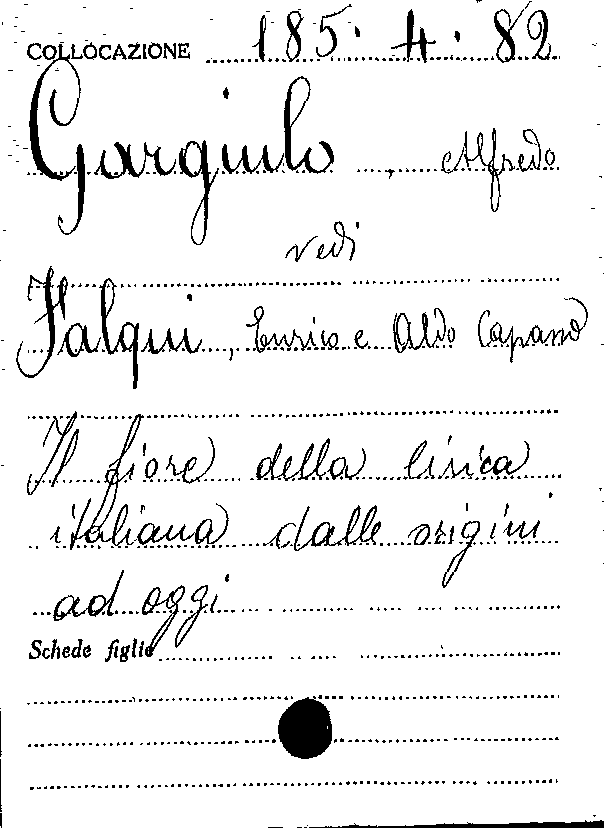 COLLOCAZIONE 185. 4. 82
Gargiulo, Alfredo
vedi
Falqui, Enrico e Aldo Capasso
Il fiore della lirica
italiana dalle origini
ad oggi
Schede figlie